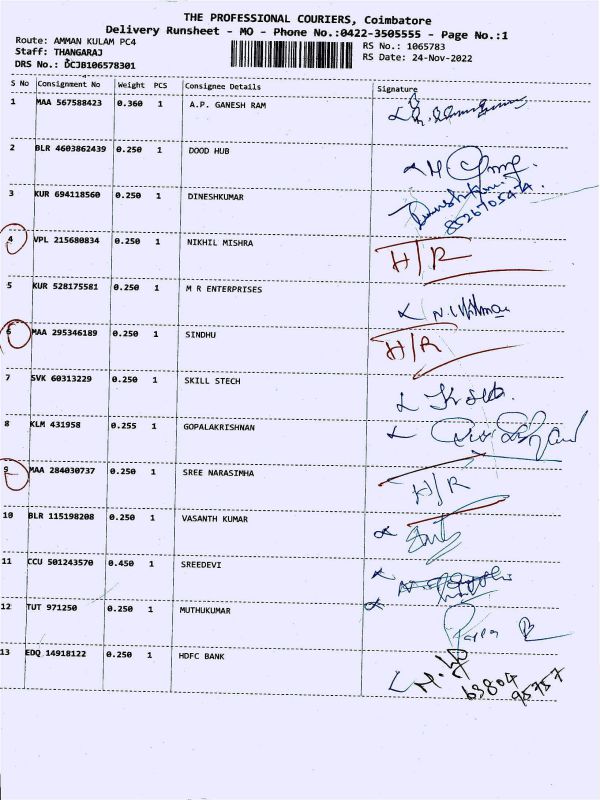 THE PROFESSIONAL COURIERS, Coimbatore
Delivery Runsheet - MO - Phone No.:0422-3505555 - Page No.:1
Route: AMMAN KULAM PC4
Staff: THANGARAJ RS No.: 1065783
DRS No.: DCJB106578301 RS Date: 24-Nov-2022
S No Consignment No Weight PCS Consignee Details Signature
1 MAA 567588423 0.360 1 A.P. GANESH RAM
2 BLR 4603862439 0.250 1 DOOD HUB
3 KUR 694118560 0.250 1 DINESHKUMAR Dineshkumar
8526705474
4 VPL 215680834 0.250 1 NIKHIL MISHRA H/R
5 KUR 528175581 0.250 1 M R ENTERPRISES
6 MAA 295346189 0.250 1 SINDHU H/R
7 SVK 60313229 0.250 1 SKILL STECH
8 KLM 431958 0.255 1 GOPALAKRISHNAN
9 MAA 284030737 0.250 1 SREE NARASIMHA H/R
10 BLR 115198208 0.250 1 VASANTH KUMAR
11 CCU 501243570 0.450 1 SREEDEVI
12 TUT 971250 0.250 1 MUTHUKUMAR
13 EDQ 14918122 0.250 1 HDFC BANK
63804
95757